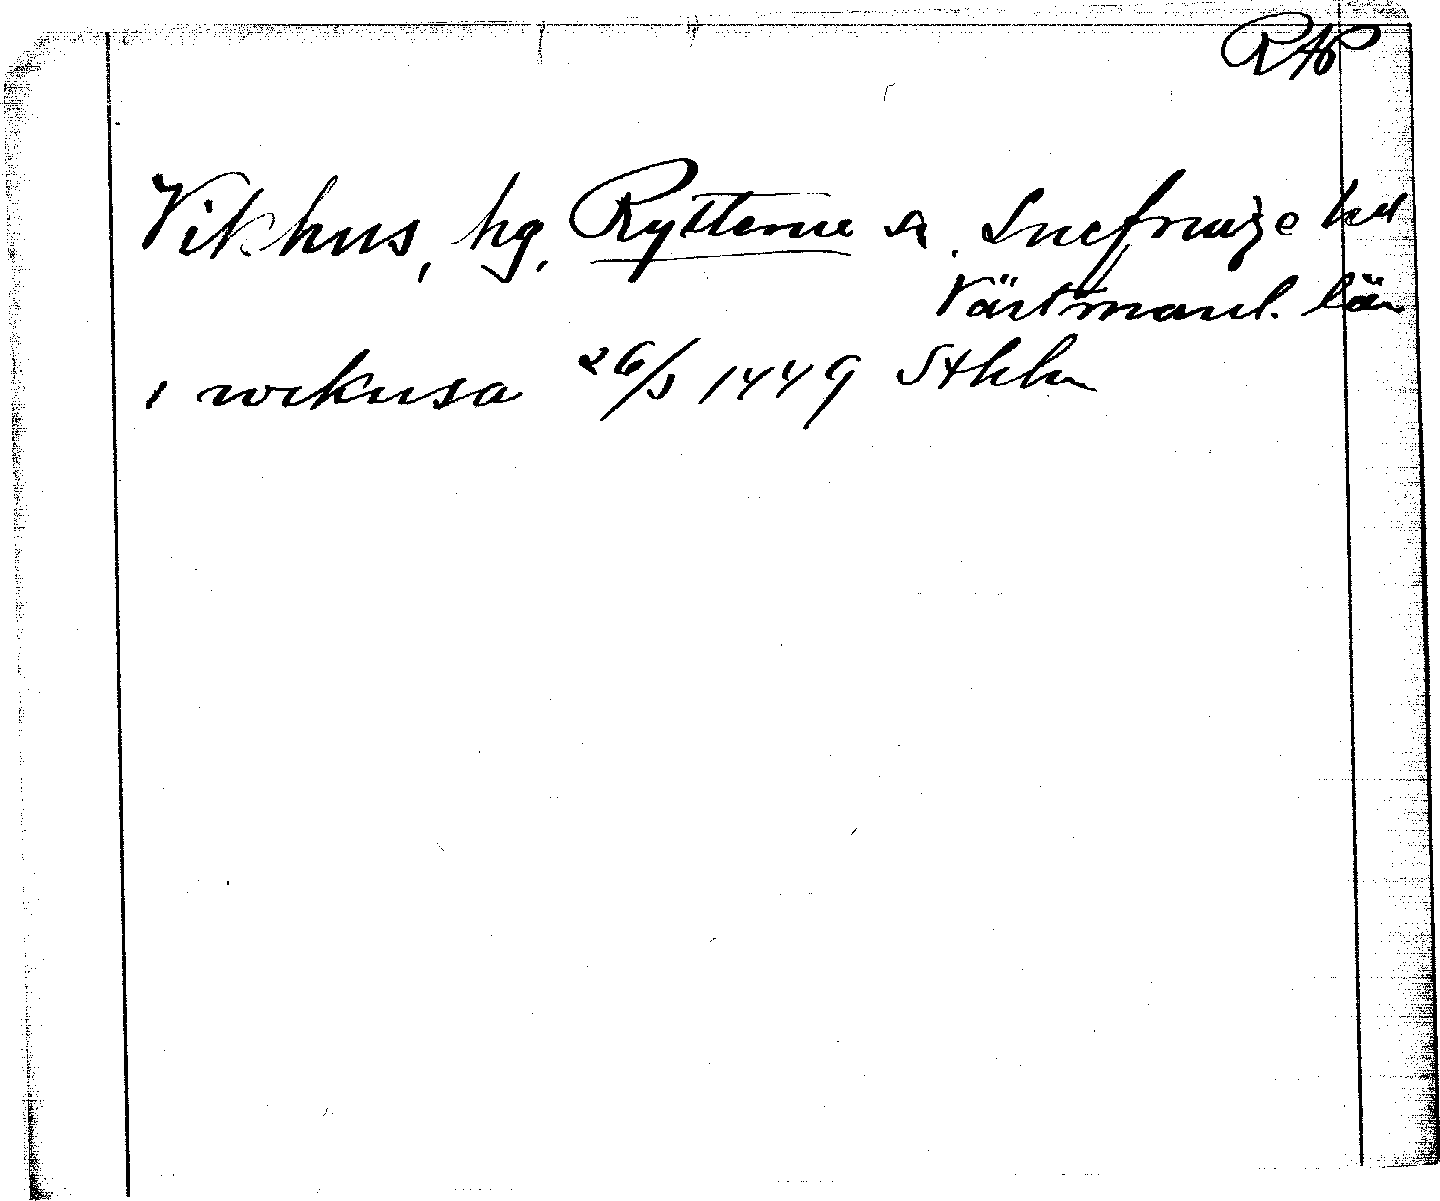 RAP
Vikhus, hg. Rytterne sn. Snefringe hd
Västmanl. län
i wikusa 26/3 1449 Sthlm